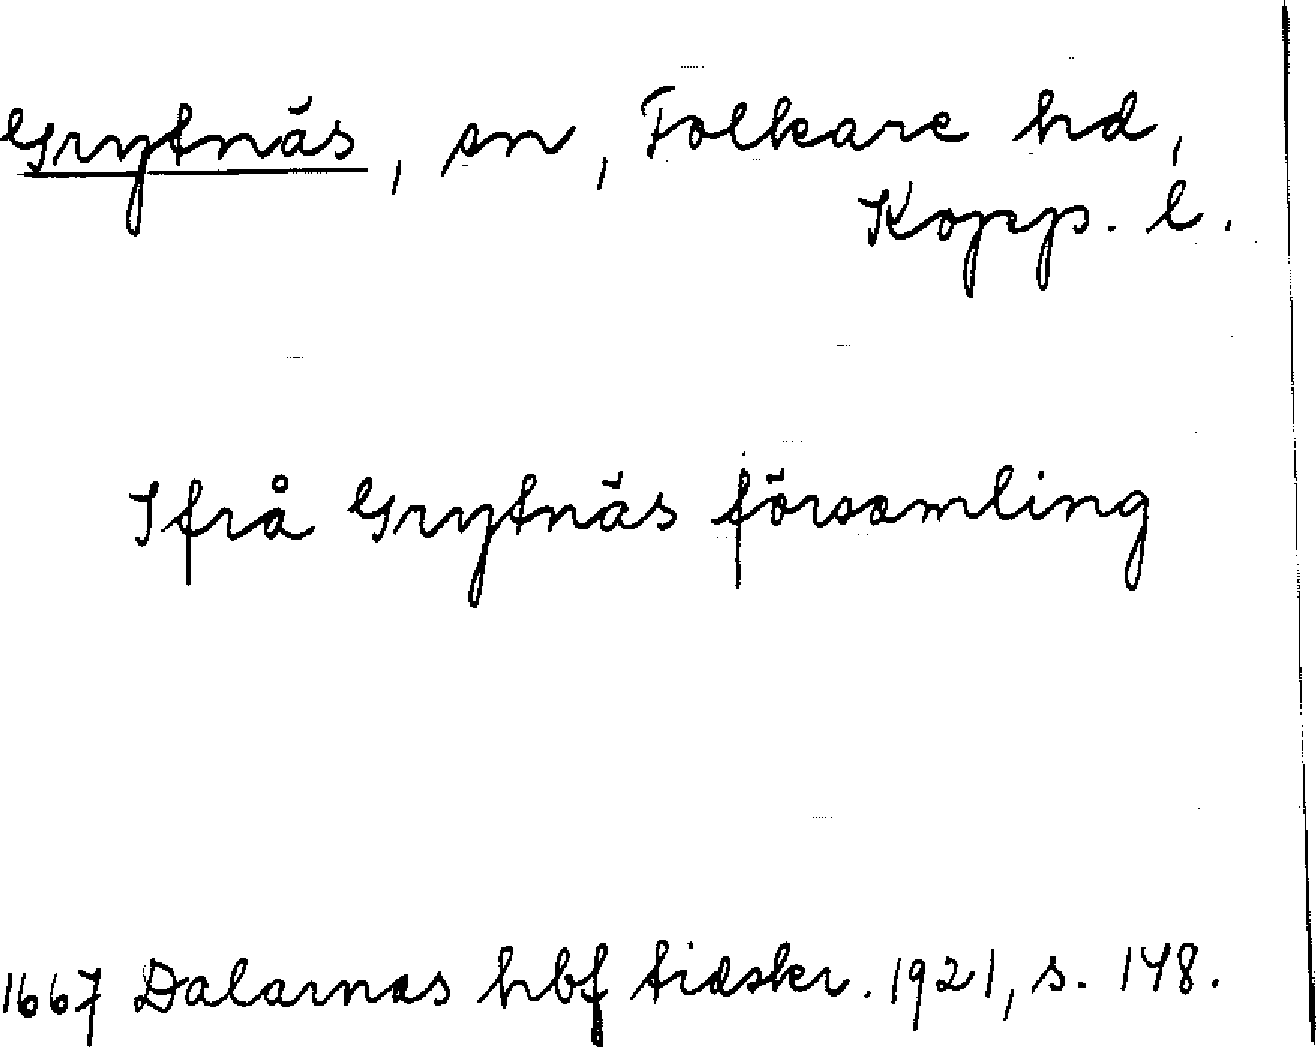 Grytnäs, sn, Folkare hd,
Kopp. l.
Ifrå Grytnäs församling
1667 Dalarnas hbf tidskr. 1921, s. 148.